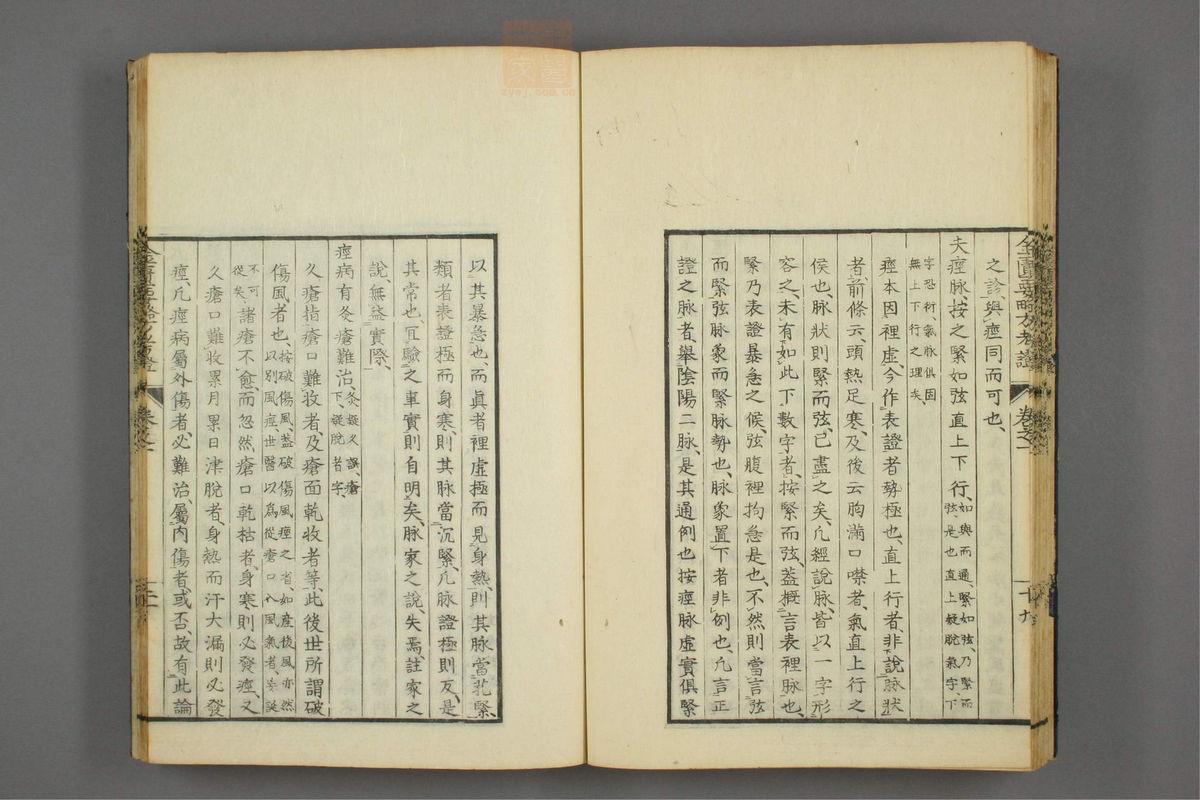 之診、與痙同而可也、
夫痙脉、按之緊如弦直上下行、如與而通、緊如弦、乃緊而弦、是也直上疑脫氣字下
字恐衍、氣脉俱因無上下行之理矣、
痙本因裡虛、今作表證者勢極也、直上行者、非說脉狀
者、前條云、頭熱足寒、及後云胸滿口噤者、氣直上行之
侯也、脉狀則緊而弦、已盡之矣、凡經說脉、皆以一字形
容之、未有如此下數字者、按緊而弦、蓋概言表裡脉也、
緊乃表證暴急之候、弦腹裡拘急是也、不然則當言弦
而緊、弦脉象而緊脉勢也、脉象置下者非例也、凡言正
證之脉者、舉陰陽二脉、是其通例也按痙脉虛實俱緊
金匱要略方考證
卷之一
十九
以其暴急也而眞者裡虛極而見身熱、則其脉當芤緊、
類者表證極而身寒、則其脉當沉緊、凡脉證極則反、是
其常也、冝驗之事實則自明矣、脉家之說、失焉、註家之
說、無益實際、
痙病有灸瘡難治、灸疑久誤、瘡下、疑脫者字、
久瘡指瘡口難收者及瘡面乾收者等、此後世所謂破
傷風者也、按破傷風、蓋破傷風痙之省如産後風亦然以別風痙、世醫以爲從瘡口入風氣者矣誕
不可從矣、諸瘡不愈、而忽然瘡口乾枯者、身寒則必發痙、又
久瘡口難收累月累日津脫者、身熱而汗大漏則必發
痙、凡痙病屬外傷者、必難治、屬内傷者、或否、故有此論
金匱要略方考證
卷之一
二十